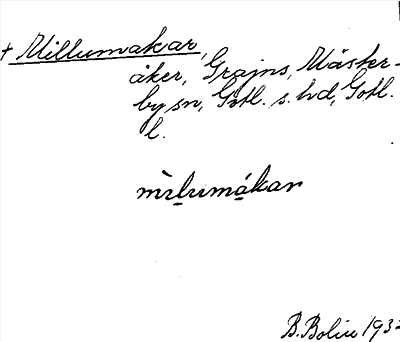 + Millumakar,
åker, Grajns, Mäster-
by sn, Gotl. s. hd, Gotl.
l.
mìlumákar
B. Bolin 1932